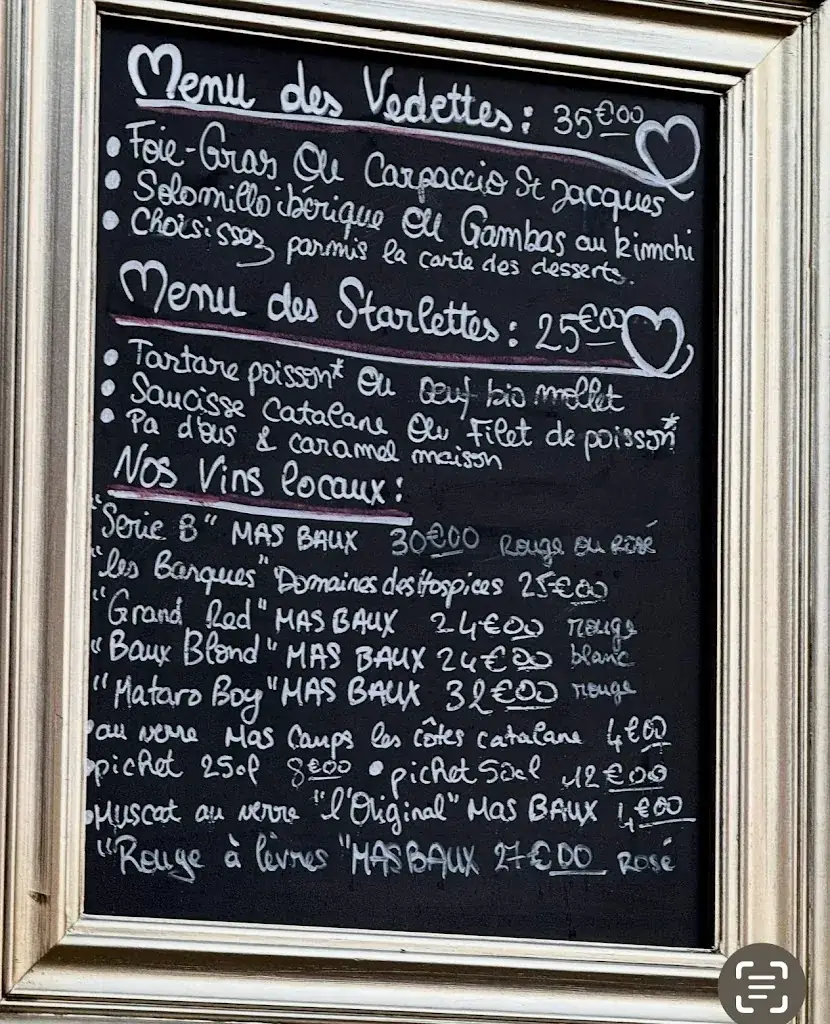 Menu des Vedettes : 35€00
• Foie-Gras Ou Carpaccio St Jacques
• Solomillo ibérique ou Gambas au kimchi
• Choisissez parmis la carte des desserts.
Menu des Starlettes : 25€00
• Tartare poisson* Ou œuf bio mollet
• Saucisse Catalane Ou Filet de poisson*
• Pa d'ous & caramel maison
Nos Vins locaux :
"Serie B" MAS BAUX 30€00 Rouge ou Rosé
"les Barques" Domaines des Hospices 25€00
"Grand Red" MAS BAUX 24€00 rouge
"Baux Blond" MAS BAUX 24€00 blanc
"Mataro Boy" MAS BAUX 32€00 rouge
• au verre Mas Camps les côtes catalane 4€00
• pichet 25cl 8€00 • pichet 50cl 12€00
• Muscat au verre "l'Original" Mas BAUX 4€00
"Rouge à lèvres" MAS BAUX 27€00 Rosé